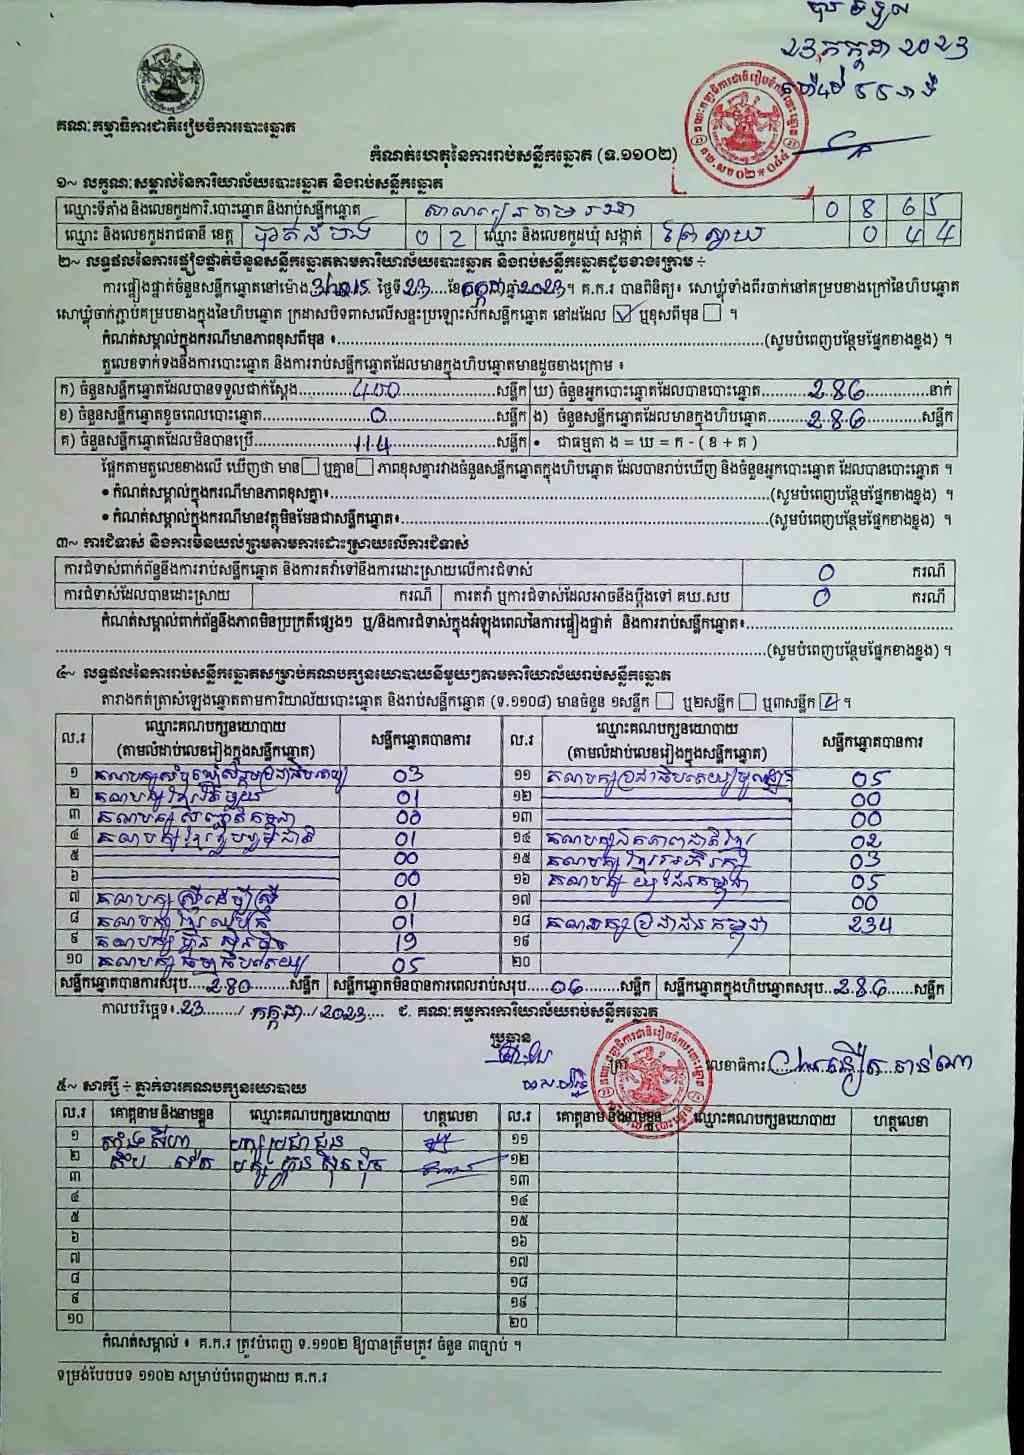 ២៣ កក្កដា ២០២៣
គណៈកម្មាធិការជាតិរៀបចំការបោះឆ្នោត
កំណត់ហេតុនៃការរាប់សន្លឹកឆ្នោត (ទ.១១០២)
១~ លក្ខណៈសម្គាល់នៃការិយាល័យបោះឆ្នោត និងរាប់សន្លឹកឆ្នោត
ឈ្មោះទីតាំង និងលេខកូដការិ.បោះឆ្នោត និងរាប់សន្លឹកឆ្នោត 0 8 6 5
ឈ្មោះ និងលេខកូដរាជធានី ខេត្ត បាត់ដំបង 0 2 ឈ្មោះ និងលេខកូដឃុំ សង្កាត់ ព្រៃស្វាយ 0 4 4
២~ លទ្ធផលនៃការផ្ទៀងផ្ទាត់ចំនួនសន្លឹកឆ្នោតតាមការិយាល័យបោះឆ្នោត និងរាប់សន្លឹកឆ្នោតដូចខាងក្រោម ៖
ការផ្ទៀងផ្ទាត់ចំនួនសន្លឹកឆ្នោតនៅម៉ោង ថ្ងៃទី 23 ខែ កក្កដា ឆ្នាំ 2023 ។ គ.ក.រ បានពិនិត្យ៖ សោឃ្លុំទាំងពីរចាក់នៅគម្របខាងក្រៅនៃហិបឆ្នោត
សោឃ្លុំចាក់ភ្ជាប់គម្របខាងក្នុងនៃហិបឆ្នោត ក្រដាសបិទពាសលើសន្ទះប្រឡោះសៀកសន្លឹកឆ្នោត នៅដដែល ☑ ឬខុសពីមុន ☐ ។
កំណត់សម្គាល់ក្នុងករណីមានភាពខុសពីមុន ៖ (សូមបំពេញបន្ថែមផ្នែកខាងខ្នង) ។
តួលេខទាក់ទងនឹងការបោះឆ្នោត និងការរាប់សន្លឹកឆ្នោតដែលមានក្នុងហិបឆ្នោតមានដូចខាងក្រោម ៖
ក) ចំនួនសន្លឹកឆ្នោតដែលបានទទួលជាក់ស្តែង 400 សន្លឹក ឃ) ចំនួនអ្នកបោះឆ្នោតដែលបានបោះឆ្នោត 286 នាក់
ខ) ចំនួនសន្លឹកឆ្នោតខូចពេលបោះឆ្នោត 0 សន្លឹក ង) ចំនួនសន្លឹកឆ្នោតដែលមានក្នុងហិបឆ្នោត 286 សន្លឹក
គ) ចំនួនសន្លឹកឆ្នោតដែលមិនបានប្រើ 114 សន្លឹក • ជាធម្មតា ង = ឃ = ក - ( ខ + គ )
ផ្អែកតាមតួលេខខាងលើ ឃើញថា មាន ☐ ឬគ្មាន ☐ ភាពខុសគ្នារវាងចំនួនសន្លឹកឆ្នោតក្នុងហិបឆ្នោត ដែលបានរាប់ឃើញ និងចំនួនអ្នកបោះឆ្នោត ដែលបានបោះឆ្នោត ។
• កំណត់សម្គាល់ក្នុងករណីមានភាពខុសគ្នា៖ (សូមបំពេញបន្ថែមផ្នែកខាងខ្នង) ។
• កំណត់សម្គាល់ក្នុងករណីមានវត្ថុមិនមែនជាសន្លឹកឆ្នោត៖ (សូមបំពេញបន្ថែមផ្នែកខាងខ្នង) ។
៣~ ការជំទាស់ និងការមិនយល់ព្រមតាមការដោះស្រាយលើការជំទាស់
ការជំទាស់ពាក់ព័ន្ធនឹងការរាប់សន្លឹកឆ្នោត និងការតវ៉ាទៅនឹងការដោះស្រាយលើការជំទាស់ 0 ករណី
ការជំទាស់ដែលបានដោះស្រាយ ករណី ការតវ៉ា ឬការជំទាស់ដែលអាចនឹងប្តឹងទៅ គឃ.សប 0 ករណី
កំណត់សម្គាល់ពាក់ព័ន្ធនឹងភាពមិនប្រក្រតីផ្សេងៗ ឬ/និងការជំទាស់ក្នុងអំឡុងពេលនៃការផ្ទៀងផ្ទាត់ និងការរាប់សន្លឹកឆ្នោត៖
(សូមបំពេញបន្ថែមផ្នែកខាងខ្នង) ។
៤~ លទ្ធផលនៃការរាប់សន្លឹកឆ្នោតសម្រាប់គណបក្សនយោបាយនីមួយៗតាមការិយាល័យរាប់សន្លឹកឆ្នោត
តារាងកត់ត្រាសំឡេងឆ្នោតតាមការិយាល័យបោះឆ្នោត និងរាប់សន្លឹកឆ្នោត (ទ.១១០៨) មានចំនួន ១សន្លឹក ☐ ឬ២សន្លឹក ☐ ឬ៣សន្លឹក ☑ ។
ល.រ ឈ្មោះគណបក្សនយោបាយ (តាមលំដាប់លេខរៀងក្នុងសន្លឹកឆ្នោត) សន្លឹកឆ្នោតបានការ ល.រ ឈ្មោះគណបក្សនយោបាយ (តាមលំដាប់លេខរៀងក្នុងសន្លឹកឆ្នោត) សន្លឹកឆ្នោតបានការ
១ គណបក្សសំបុកឃ្មុំសង្គមប្រជាធិបតេយ្យ 03 ១១ គណបក្សប្រជាធិបតេយ្យមូលដ្ឋាន 05
២ គណបក្សខ្មែរតែមួយ 01 ១២ 00
៣ គណបក្ស កម្ពុជា 00 ១៣ 00
៤ គណបក្សខ្មែររួបរួមជាតិ 01 ១៤ គណបក្សឯកភាពជាតិខ្មែរ 02
៥ 00 ១៥ គណបក្សខ្មែរអភិរក្ស 03
៦ 00 ១៦ គណបក្ស យុវជនកម្ពុជា 05
៧ គណបក្សស្ត្រីដើម្បីស្ត្រី 01 ១៧ 00
៨ គណបក្សខ្មែរឈប់ក្រ 01 ១៨ គណបក្សប្រជាជនកម្ពុជា 234
៩ គណបក្សហ្វ៊ុនស៊ិនប៉ិច 19 ១៩
១០ គណបក្សធម្មាធិបតេយ្យ 05 ២០
សន្លឹកឆ្នោតបានការសរុប 280 សន្លឹក សន្លឹកឆ្នោតមិនបានការពេលរាប់សរុប 06 សន្លឹក សន្លឹកឆ្នោតក្នុងហិបឆ្នោតសរុប 286 សន្លឹក
កាលបរិច្ឆេទ៖ 23 / កក្កដា / 2023 ជ. គណៈកម្មការការិយាល័យរាប់សន្លឹកឆ្នោត
ប្រធាន
ត្រា លេខាធិការ
៥~ សាក្សី ៖ ភ្នាក់ងារគណបក្សនយោបាយ
ល.រ គោត្តនាម និងនាមខ្លួន ឈ្មោះគណបក្សនយោបាយ ហត្ថលេខា ល.រ គោត្តនាម និងនាមខ្លួន ឈ្មោះគណបក្សនយោបាយ ហត្ថលេខា
១ បក្សប្រជាជន ១១
២ បក្ស ហ្វ៊ុនស៊ិនប៉ិច ១២
៣ ១៣
៤ ១៤
៥ ១៥
៦ ១៦
៧ ១៧
៨ ១៨
៩ ១៩
១០ ២០
កំណត់សម្គាល់ ៖ គ.ក.រ ត្រូវបំពេញ ទ.១១០២ ឱ្យបានត្រឹមត្រូវ ចំនួន ៣ច្បាប់ ។
ទម្រង់បែបបទ ១១០២ សម្រាប់បំពេញដោយ គ.ក.រ